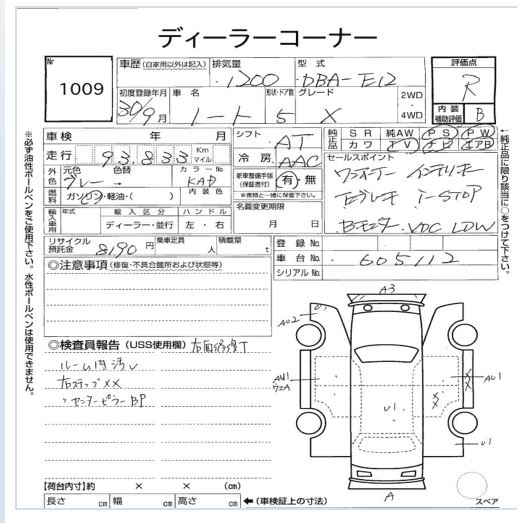 ディーラーコーナー
Nr 1009
車歴 (自家用以外は記入)
排気量 1200
型式 DBA-E12
評価点 R
初度登録年月 30/9月
車名 ノート
形状・ドア数 5
グレード X
2WD
4WD
内装補助評価 B
車検 年 月
走行 93,833 Km マイル
シフト AT
冷房 AAC
純正品 SR 純AW PS PW
カワ TV ナビ エアB
外色 元色 グレー 色替
カラーNo. KAD
内装色
燃料 ガソリン・軽油・( )
新車整備手帳(保証書付) 有・無
セールスポイント
ワンオーナー インテリキー
エマブレーキ I-STOP
Bモニター VDC LDW
輸入車用 年式 輸入区分 ディーラー・並行 ハンドル 左・右
名義変更期限 月 日
リサイクル預託金 8190円
乗車定員 人
積載量 t
登録No.
車台No. 605112
シリアルNo.
◎注意事項 (修復・不具合箇所および状態等)
◎検査員報告 (USS使用欄)
ルーム内汚レ
右ステップXX
〃センターピラーBP
A3
AU2
AU1
U1
AU1
XX
X
U1
A
スペア
【荷台内寸】約 × × (cm)
長さ cm 幅 cm 高さ cm ←(車検証上の寸法)
※必ず油性ボールペンをご使用下さい。水性ボールペンは使用できません。
←純正品に限り該当に○をつけて下さい。